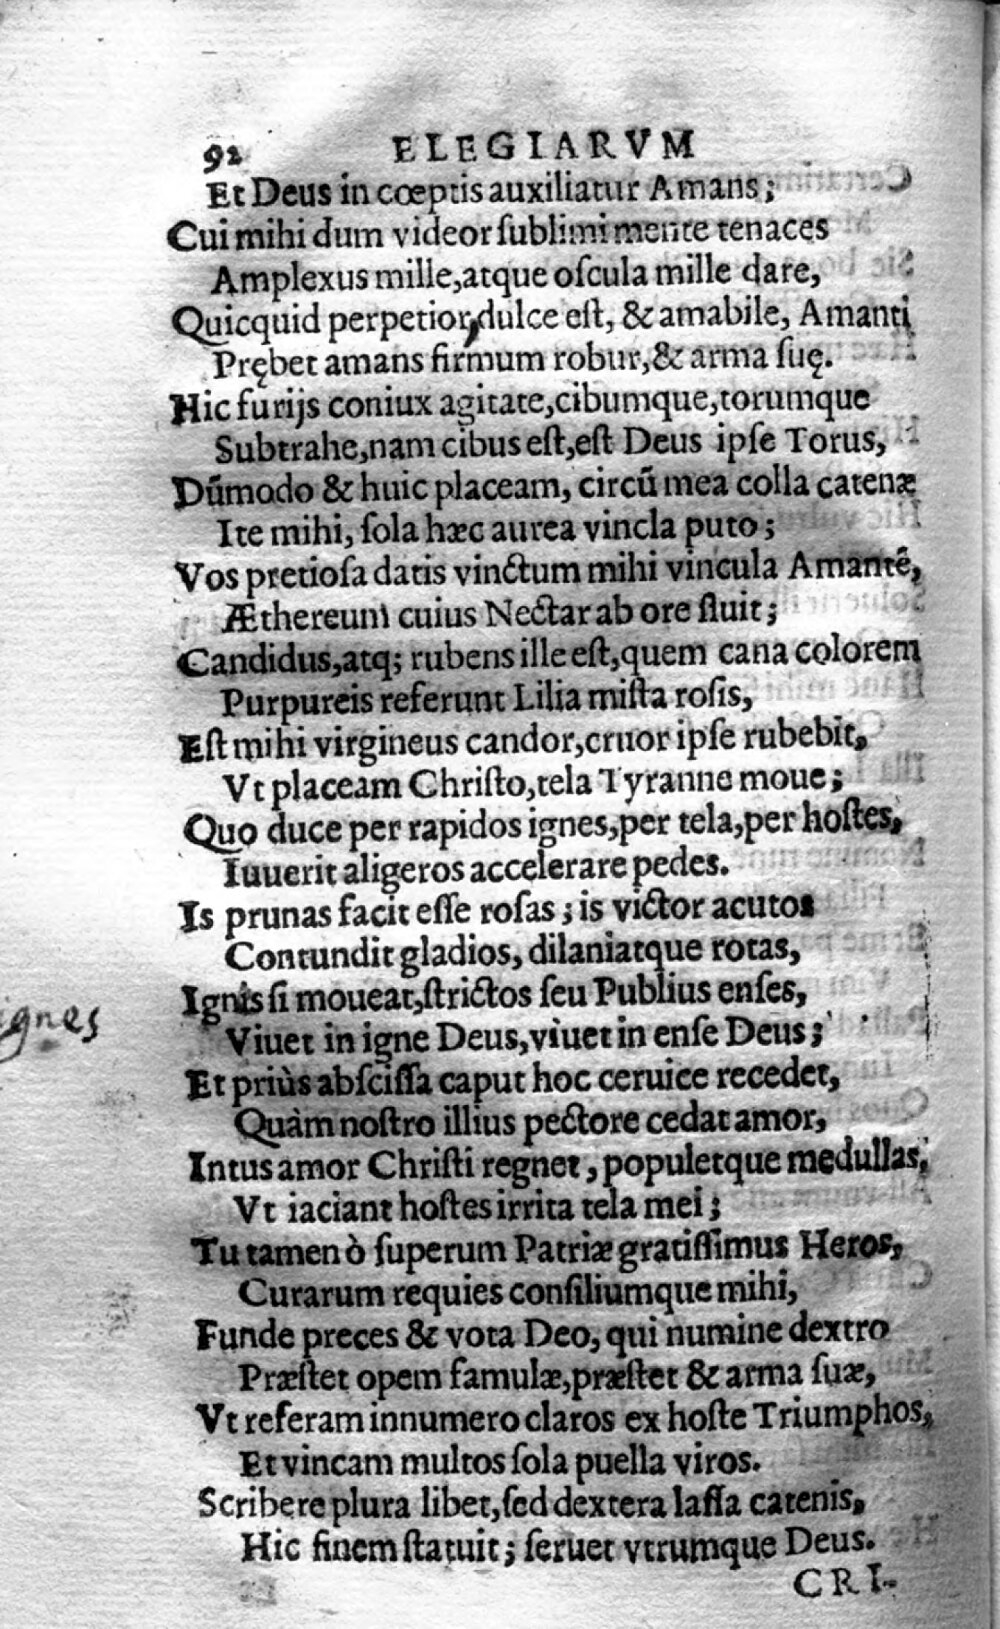 92 ELEGIARVM
Et Deus in cœptis auxiliatur Amans;
Cui mihi dum videor ſublimi mente tenaces
Amplexus mille, atque oſcula mille dare,
Quicquid perpetior, dulce eſt, & amabile, Amanti
Prębet amans firmum robur, & arma ſuę.
Hic furijs coniux agitate, cibumque, torumque
Subtrahe, nam cibus eſt, eſt Deus ipſe Torus,
Dūmodo & huic placeam, circū mea colla catenæ
Ite mihi, ſola hæc aurea vincla puto;
Vos pretioſa datis vinctum mihi vincula Amantē,
Æthereum cuius Nectar ab ore fluit;
Candidus, atq; rubens ille eſt, quem cana colorem
Purpureis referunt Lilia miſta roſis,
Eſt mihi virgineus candor, cruor ipſe rubebit,
Vt placeam Chriſto, tela Tyranne moue;
Quo duce per rapidos ignes, per tela, per hoſtes,
Iuuerit aligeros accelerare pedes.
Is prunas facit eſſe roſas; is victor acutos
Contundit gladios, dilaniatque rotas,
Ignis ſi moueat, ſtrictos ſeu Publius enſes,
ignes
Viuet in igne Deus, viuet in enſe Deus;
Et priùs abſciſſa caput hoc ceruice recedet,
Quàm noſtro illius pectore cedat amor,
Intus amor Chriſti regnet, populetque medullas,
Vt iaciant hoſtes irrita tela mei;
Tu tamen ò ſuperum Patriæ gratiſſimus Heros,
Curarum requies conſiliumque mihi,
Funde preces & vota Deo, qui numine dextro
Præſtet opem famulæ, præſtet & arma ſuæ,
Vt referam innumero claros ex hoſte Triumphos,
Et vincam multos ſola puella viros.
Scribere plura libet, ſed dextera laſſa catenis,
Hic finem ſtatuit; ſeruet vtrumque Deus.
CRI-